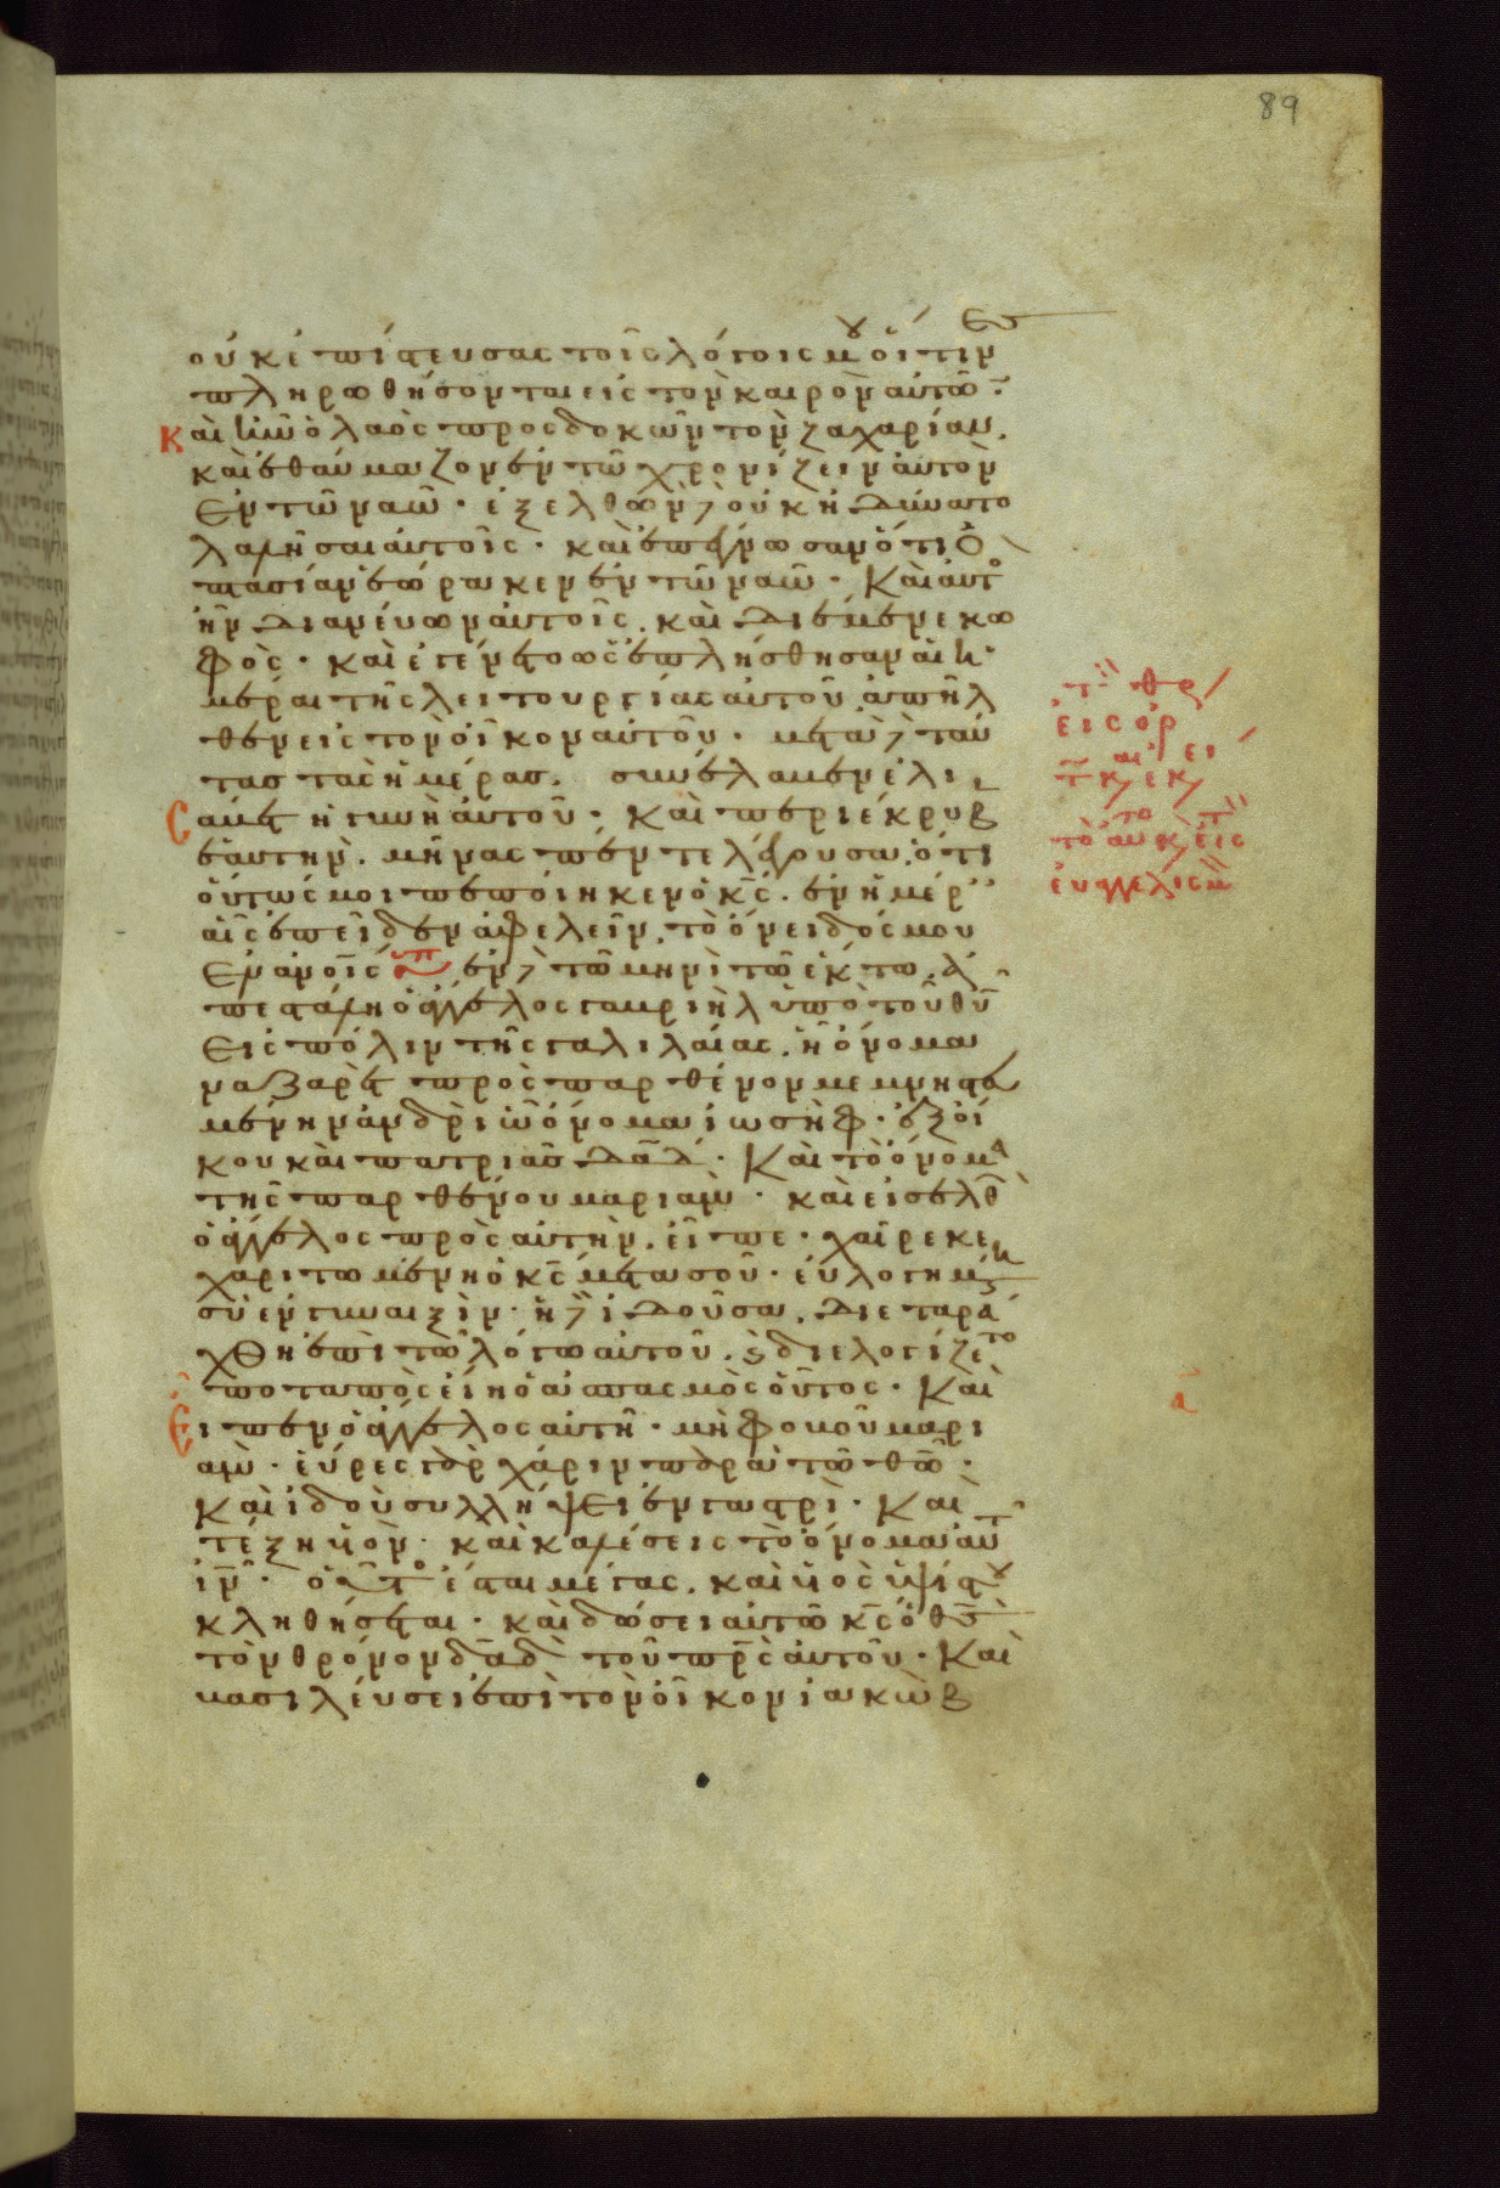 89
ουκ ἐπίστευσας τοῖς λόγοις μου οἵτιν ες
πληρωθήσονται εἰς τὸν καιρὸν αὐτῶν·
Καὶ ἦν ὁ λαὸς προσδοκῶν τὸν ζαχαρίαν.
καὶ ἐθαύμαζον ἐν τῶ χρονίζειν αὐτὸν
Ἐν τῶ ναῶ· ἐξελθὼν δὲ οὐκ ἠδύνατο
λαλῆσαι αὐτοῖς· καὶ ἐπέγνωσαν ὅτι ὀ
πτασίαν ἑώρακεν ἐν τῶ ναῶ· Καὶ αὐτὸ
ἦν διανεύων αὐτοῖς. καὶ διέμενε κω
φὸς· καὶ ἐγένετο ὡς ἐπλήσθησαν αἱ ἡ
μέραι τῆς λειτουργίας αὐτοῦ ἀπῆλ
θεν εἰς τὸν οἶκον αὐτοῦ· μετὰ δὲ ταύ
τας τὰς ἡμέρας. συνέλαβεν ἐλι
Σάβετ ἡ γυνὴ αὐτοῦ· Καὶ περιέκρυβ
ἑαυτὴν. μῆνας πέντε λέγουσα, ὅτι
οὕτως μοι πεποίηκεν ὁ κς. ἐν ἡμέρ
αἷς ἐπεῖδεν ἀφελεῖν. τὸ ὄνειδός μου
Ἐν ἀνοῖς ἐν δὲ τῶ μηνὶ τῶ ἕκτω. ἀ
πεστάλη ὁ ἄγγελος γαβριὴλ ὑπὸ τοῦ θυ
Εἰς πόλιν τῆς γαλιλαίας. ἧ ὄνομα
ναζαρὲτ πρὸς παρθένον μεμνηστευ
μένην ἀνδρὶ ὧ ὄνομα ἰωσὴφ· ἐξ οἴ
κου καὶ πατριᾶς δαδ· Καὶ τὸ ὄνομα
τῆς παρθένου μαριάμ· καὶ εἰσελθ
ὁ ἄγγελος πρὸς αὐτὴν. εἶπε· χαῖρε κε
χαριτωμένη ὁ κς μετὰ σοῦ· εὐλογημένη
σὺ ἐν γυναιξὶν· ἡ δὲ ἰδοῦσα. διεταρά
χθη ἐπὶ τῶ λόγω αὐτοῦ. καὶ διελογίζετο
ποταπὸς εἴη ὁ ἀσπασμὸς οὗτος· Καὶ
Εἶπεν ὁ ἄγγελος αὐτῆ· μὴ φοβοῦ μαρι
άμ· εὗρες γὰρ χάριν παρὰ τῶ θω·
Καὶ ἰδοὺ συλλήψει ἐν γαστρὶ· Καὶ
τέξη υἱὸν· καὶ καλέσεις τὸ ὄνομα αὐτ
ιν· οὗτο ἔσται μέγας. καὶ υἱὸς ὑψίστου
κληθήσεται· καὶ δώσει αὐτῶ κς ὁ θς
τὸν θρόνον δαδ τοῦ πρς αὐτοῦ· Καὶ
βασιλεύσει ἐπὶ τὸν οἶκον ἰακὼβ